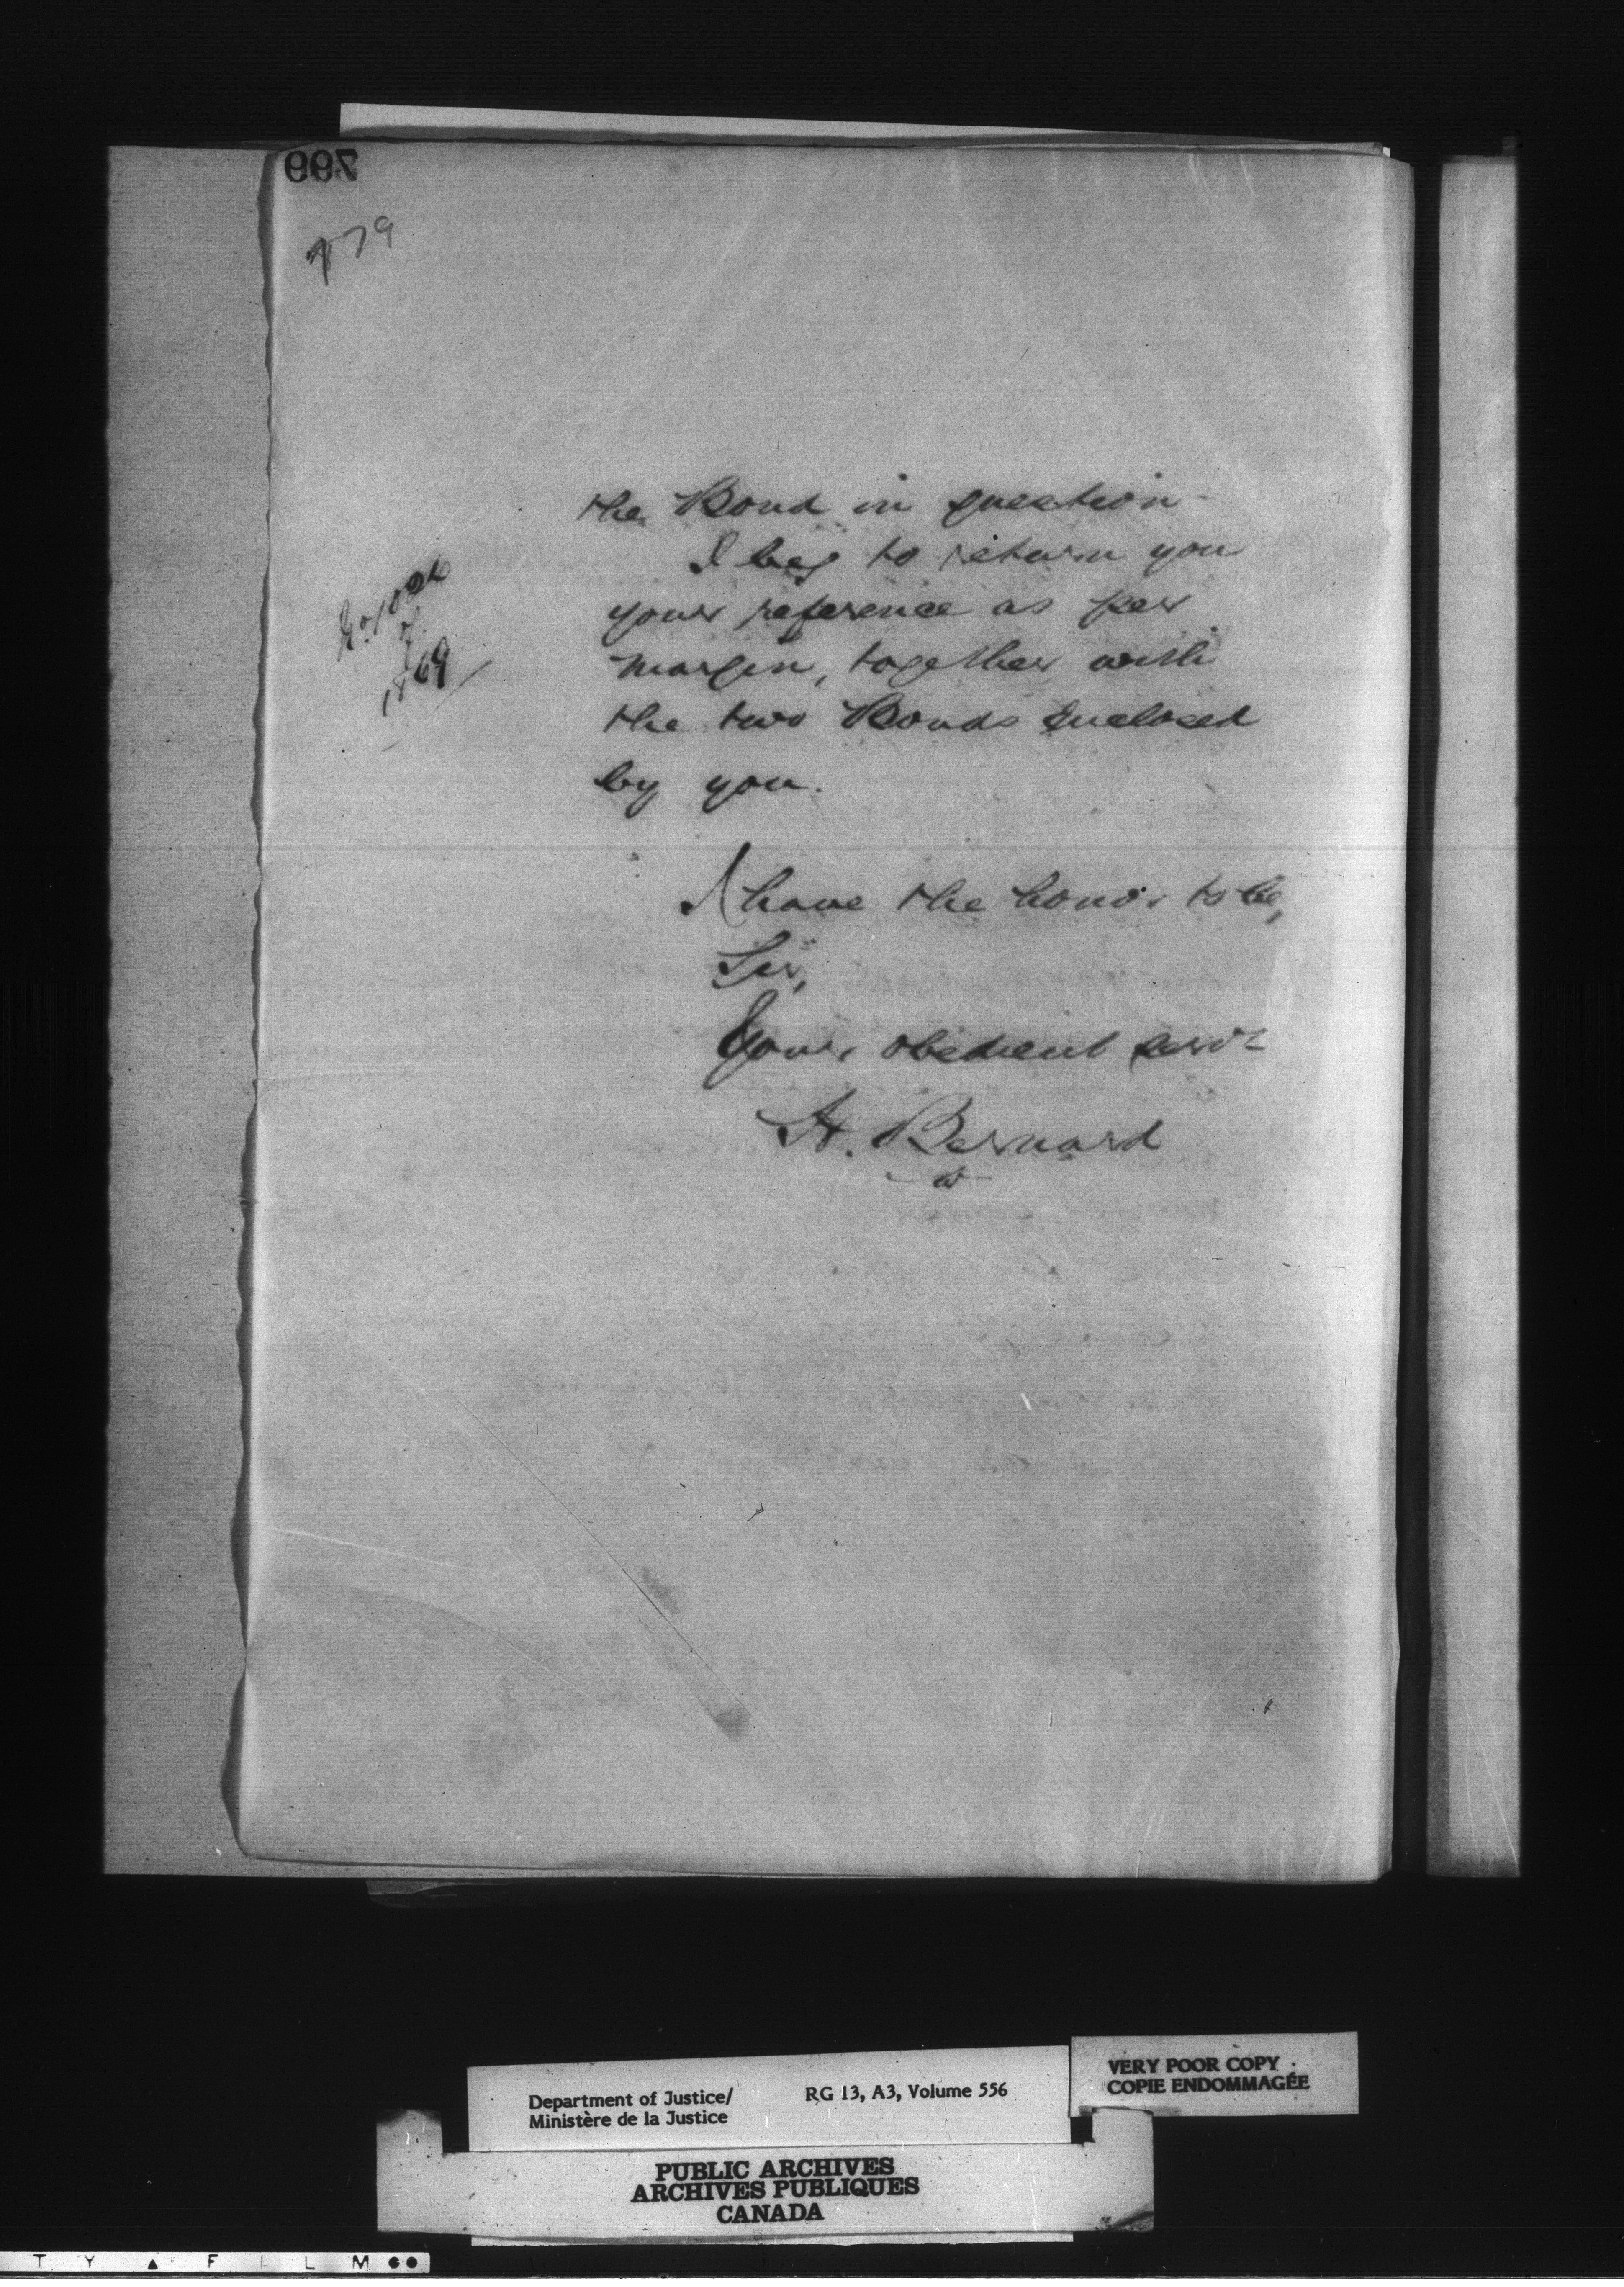 799
779
the Bond in question
I beg to return you
your reference as per
margin, together with
the two Bonds enclosed
by you.
of
1869
I have the honor to be,
Sir,
Your obedient serv't
H. Bernard
Department of Justice/
Ministère de la Justice
RG 13, A3, Volume 556
VERY POOR COPY
COPIE ENDOMMAGÉE
PUBLIC ARCHIVES
ARCHIVES PUBLIQUES
CANADA
T Y F I L M